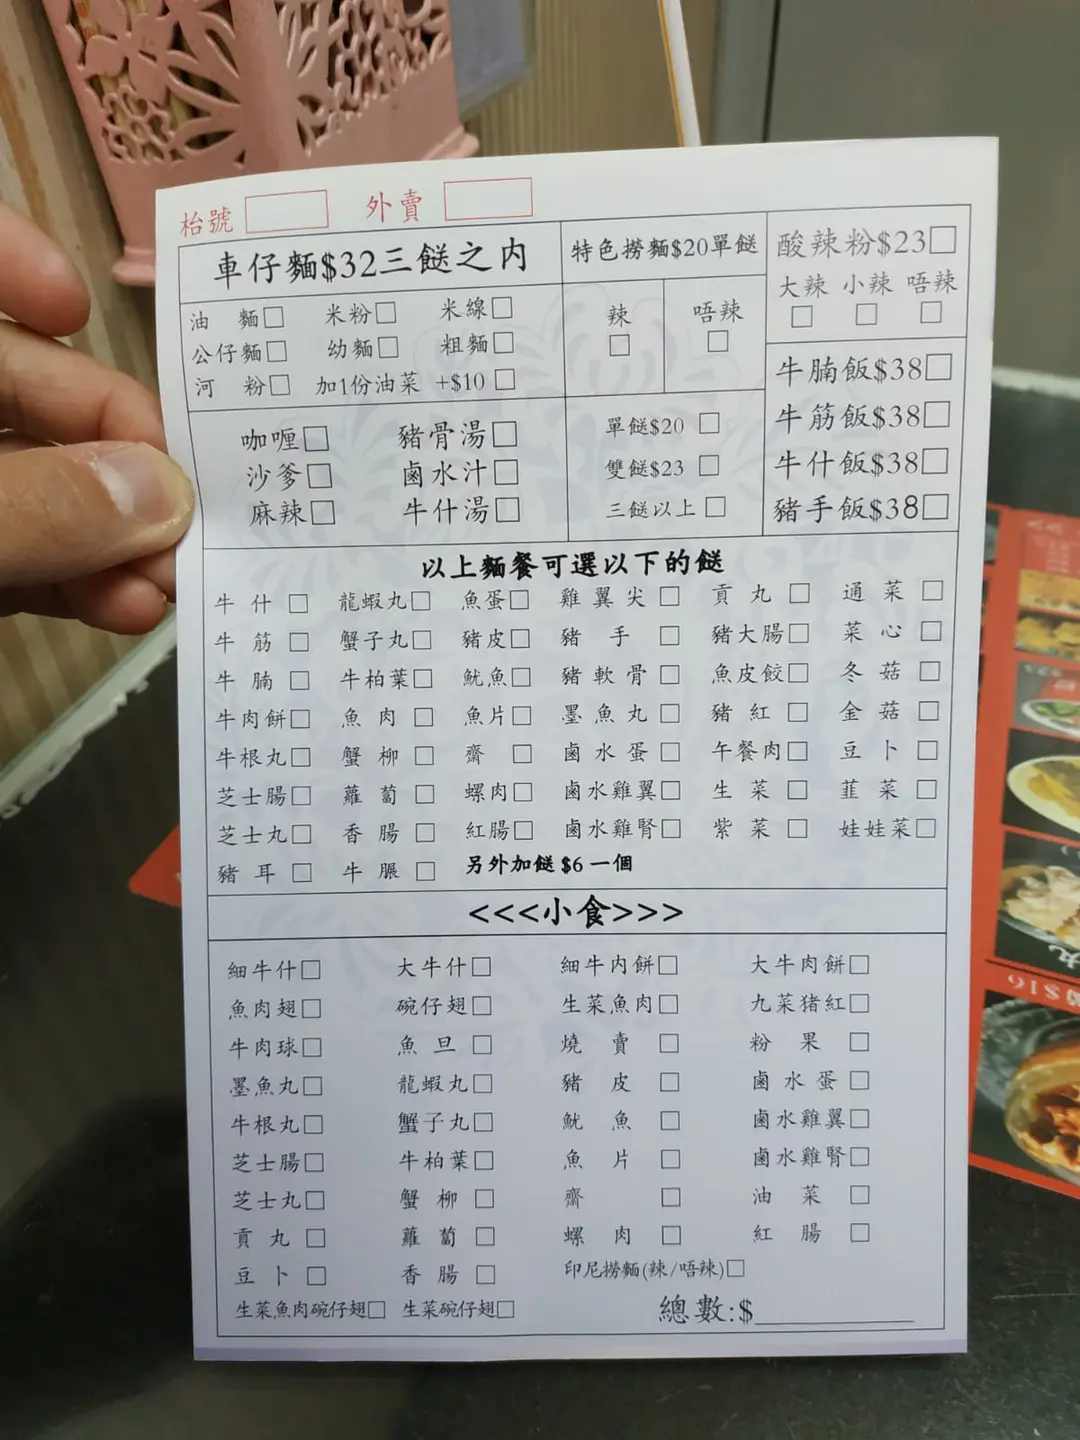 枱號 外賣
車仔麵$32三餸之内
油麵□ 米粉□ 米線□
公仔麵□ 幼麵□ 粗麵□
河粉□ 加1份油菜 +$10 □
特色撈麵$20單餸
辣□ 唔辣□
酸辣粉$23□
大辣 小辣 唔辣
□ □ □
咖喱□ 豬骨湯□
沙爹□ 鹵水汁□
麻辣□ 牛什湯□
單餸$20 □
雙餸$23 □
三餸以上 □
牛腩飯$38□
牛筋飯$38□
牛什飯$38□
豬手飯$38□
以上麵餐可選以下的餸
牛什□ 龍蝦丸□ 魚蛋□ 雞翼尖□ 貢丸□ 通菜□
牛筋□ 蟹子丸□ 豬皮□ 豬手□ 豬大腸□ 菜心□
牛腩□ 牛柏葉□ 魷魚□ 豬軟骨□ 魚皮餃□ 冬菇□
牛肉餅□ 魚肉□ 魚片□ 墨魚丸□ 豬紅□ 金菇□
牛根丸□ 蟹柳□ 齋□ 鹵水蛋□ 午餐肉□ 豆卜□
芝士腸□ 蘿蔔□ 螺肉□ 鹵水雞翼□ 生菜□ 韮菜□
芝士丸□ 香腸□ 紅腸□ 鹵水雞腎□ 紫菜□ 娃娃菜□
豬耳□ 牛脹□ 另外加餸$6一個
<<<小食>>>
細牛什□ 大牛什□ 細牛内餅□ 大牛肉餅□
魚肉翅□ 碗仔翅□ 生菜魚肉□ 九菜猪紅□
牛肉球□ 魚旦□ 燒賣□ 粉果□
墨魚丸□ 龍蝦丸□ 豬皮□ 鹵水蛋□
牛根丸□ 蟹子丸□ 魷魚□ 鹵水雞翼□
芝士腸□ 牛柏葉□ 魚片□ 鹵水雞腎□
芝士丸□ 蟹柳□ 齋□ 油菜□
貢丸□ 蘿蔔□ 螺肉□ 紅腸□
豆卜□ 香腸□ 印尼撈麵(辣/唔辣)□
生菜魚肉碗仔翅□ 生菜碗仔翅□
總數:$
$16
丸